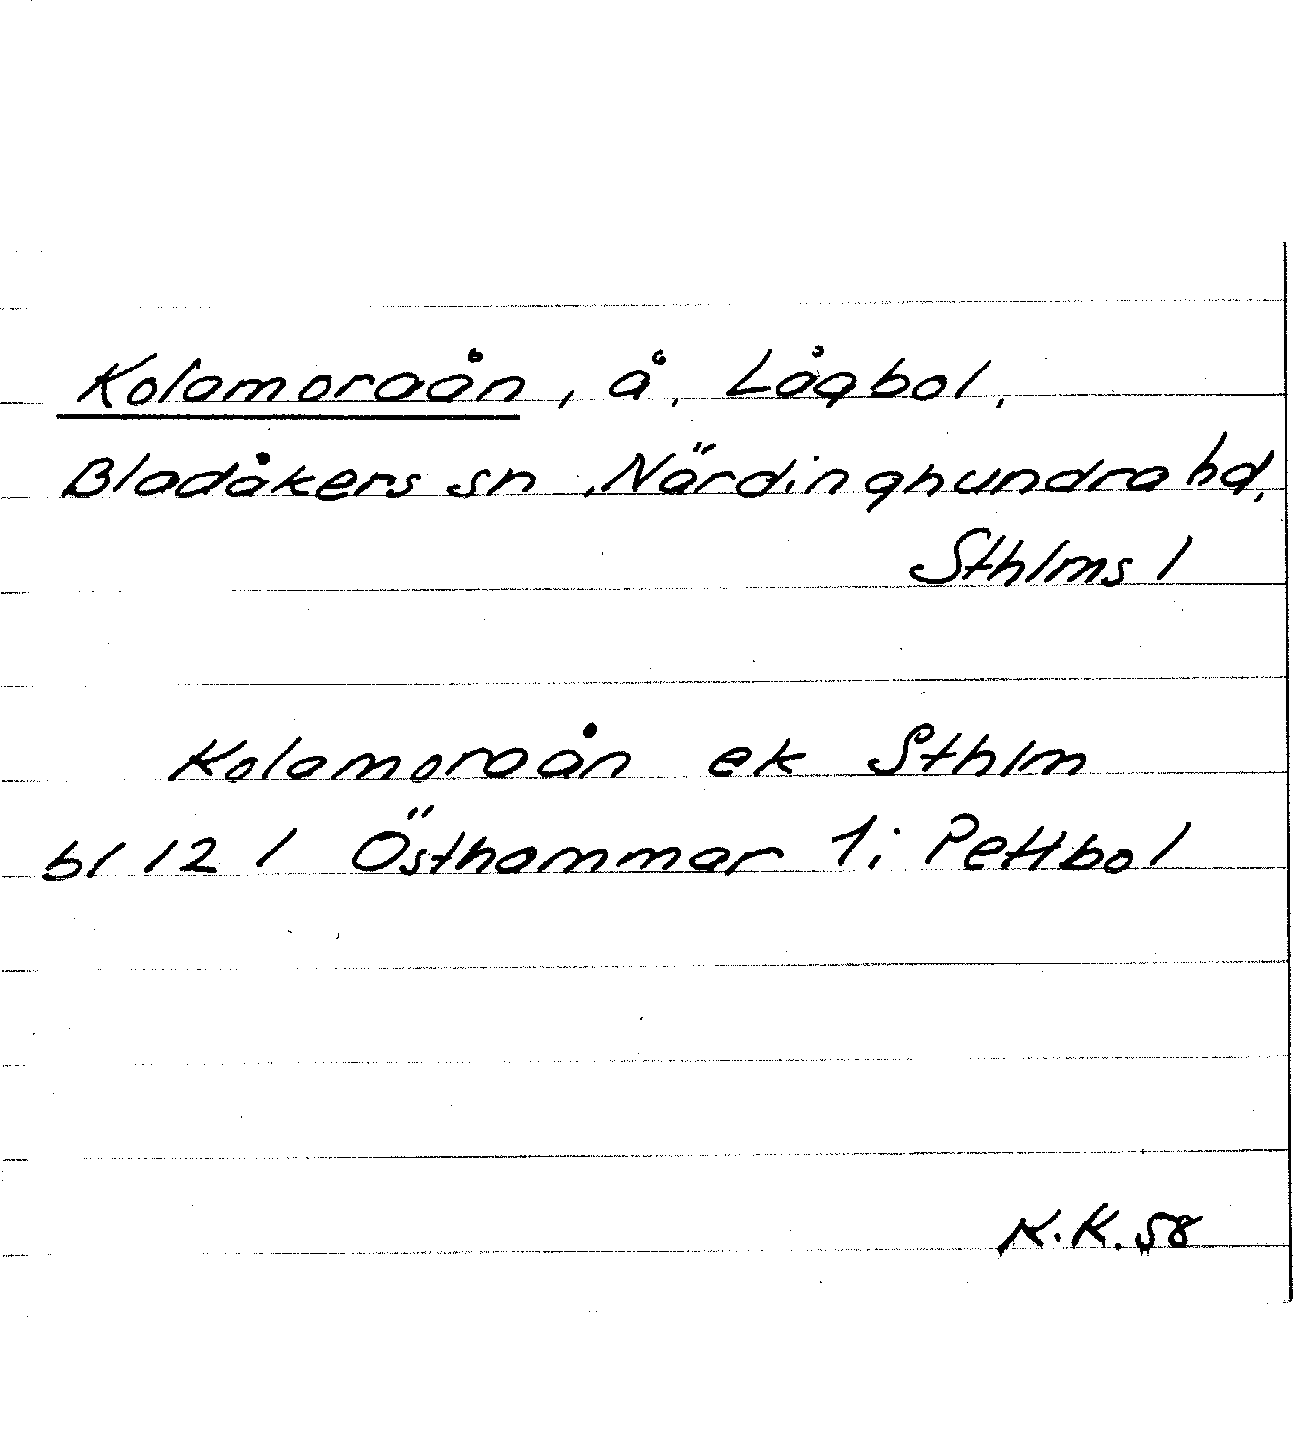 Kolamoraån, å, Lågbol,
Bladåkers sn, Närdinghundra hd,
Sthlms l
Kolamoraån ek Sthlm
bl 12 l Östhammar 1; Pettbol
K.K. 58